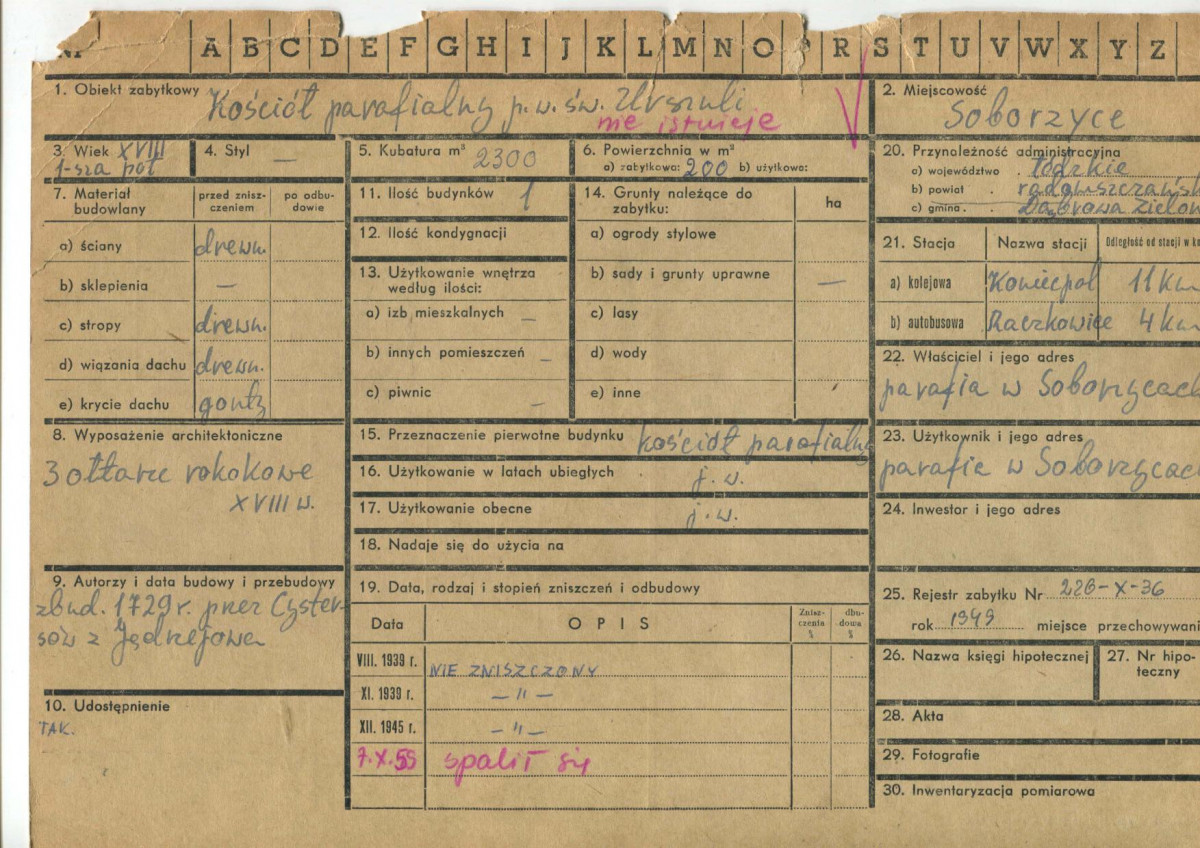 A B C D E F G H I J K L M N O R S T U V W X Y Z
1. Obiekt zabytkowy Kościół parafialny p. w. św. Urszuli
nie istnieje
2. Miejscowość
Soborzyce
3. Wiek XVIII
1-sza poł
4. Styl —
5. Kubatura m³ 2300
6. Powierzchnia w m²
a) zabytkowa: 200 b) użytkowa:
20. Przynależność administracyjna
a) województwo . łódzkie
b) powiat . radomszczańsk
c) gmina . Dąbrowa Zielon
7. Materiał budowlany
przed znisz-
czeniem
po odbu-
dowie
a) ściany drewn.
b) sklepienia —
c) stropy drewn.
d) wiązania dachu drewn.
e) krycie dachu gonty
11. Ilość budynków 1
12. Ilość kondygnacji
13. Użytkowanie wnętrza
według ilości:
a) izb mieszkalnych —
b) innych pomieszczeń —
c) piwnic —
14. Grunty należące do
zabytku:
ha
a) ogrody stylowe
b) sady i grunty uprawne —
c) lasy
d) wody
e) inne
21. Stacja Nazwa stacji Odległość od stacji w k
a) kolejowa Koniecpol 11 km
b) autobusowa Raczkowice 4 km
22. Właściciel i jego adres
parafia w Soborzycach
8. Wyposażenie architektoniczne
3 ołtarze rokokowe
XVIII w.
15. Przeznaczenie pierwotne budynku kościół parafialny
16. Użytkowanie w latach ubiegłych j. w.
17. Użytkowanie obecne j. w.
18. Nadaje się do użycia na
23. Użytkownik i jego adres
parafia w Soborzycach
24. Inwestor i jego adres
9. Autorzy i data budowy i przebudowy
zbud. 1729 r. przez Cyster-
sów z Jędrzejowa
10. Udostępnienie
TAK.
19. Data, rodzaj i stopień zniszczeń i odbudowy
Data OPIS
Znisz-
czenia
%
dbu-
dowa
%
VIII. 1939 r. NIE ZNISZCZONY
XI. 1939 r. — " —
XII. 1945 r. — " —
7.X.55 spalił się
25. Rejestr zabytku Nr 226-X-36
rok 1949 miejsce przechowywani
26. Nazwa księgi hipotecznej
27. Nr hipo-
teczny
28. Akta
29. Fotografie
30. Inwentaryzacja pomiarowa